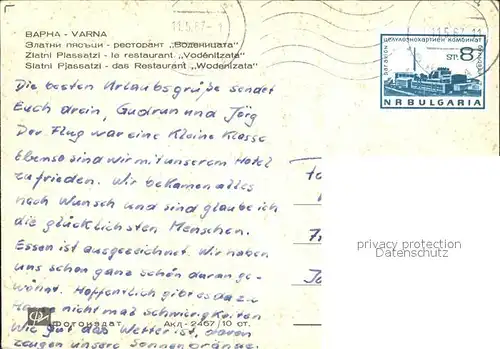 ВАРНА - VARNA
Златни пясъци - ресторант „Воденицата"
Zlatni Plassatzi - le restaurant „Vodénitzata"
Slatni Pjassatzi - das Restaurant „Wodenizata"
11.5.67-1
11.5.67.11
целулознохартиен комбинат
СТ. 8
NR BULGARIA
Die besten Urlaubsgrüße sendet
Euch drein, Gudrun und Jörg
Der Flug war eine kleine Klasse
Ebenso sind wir mit unserem Hotel
zufrieden. Wir bekamen alles
nach Wunsch und sind glaube ich
die glücklichsten Menschen.
Essen ist ausgezeichnet. Wir haben
uns schon ganz schön daran ge-
wöhnt. Hoffentlich gibt es dazu
nicht mal Schwierigkeiten
Wie gut das Wetter ist, davon
zeugen unsere Sonnenbrände.
privacy protection
Datenschutz
Фотоиздат Акл-2467/10 ст.